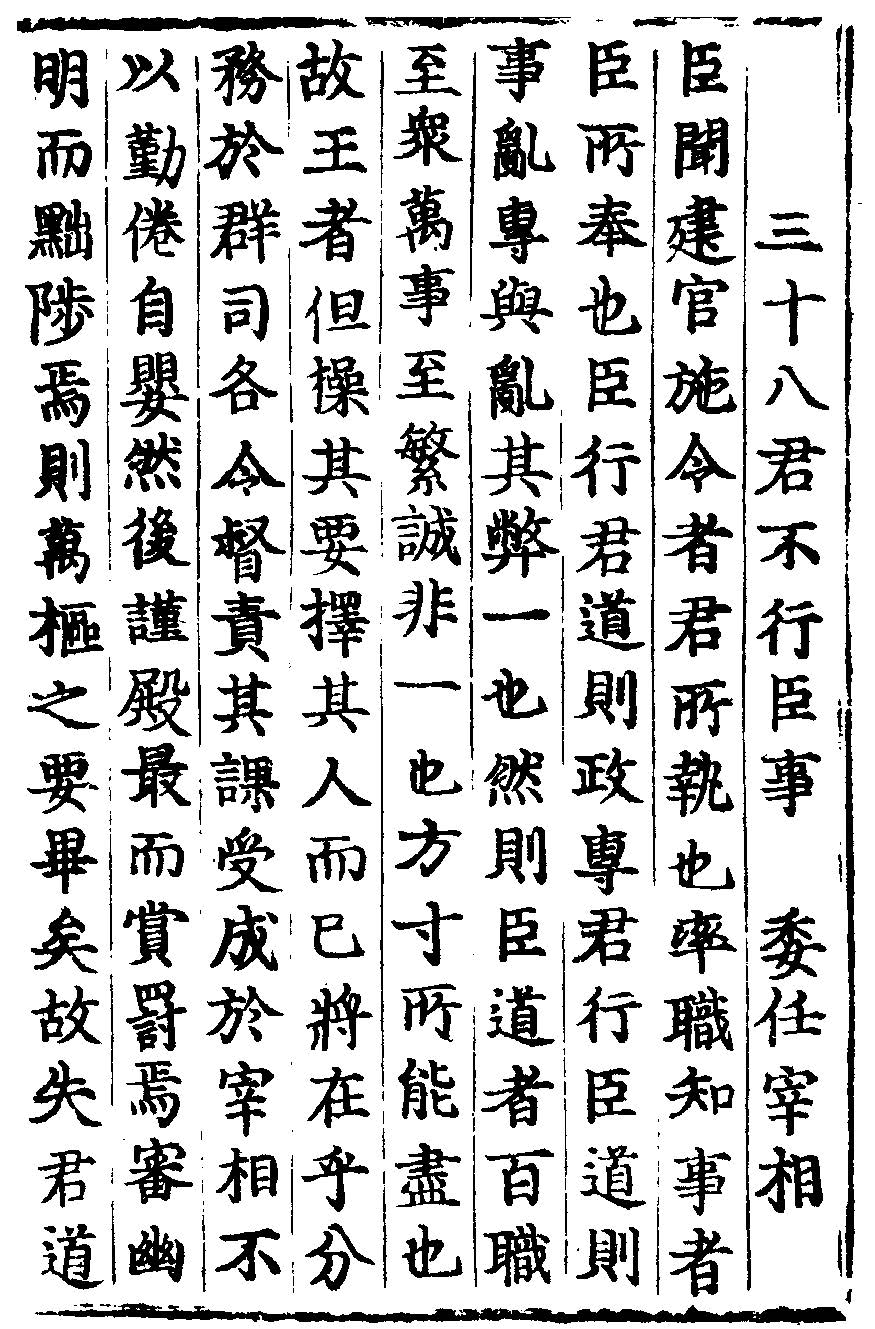 三十八君不行臣事　委任宰相
臣聞建官施令者君所執也率職知事者
臣所奉也臣行君道則政專君行臣道則
事亂專與亂其弊一也然則臣道者百職
至衆萬事至繁誠非一也方寸所能盡也
故王者但操其要擇其人而已將在乎分
務於群司各令督責其課受成於宰相不
以勤倦自嬰然後謹殿最而賞罰焉審幽
明而黜陟焉則萬樞之要畢矣故失君道